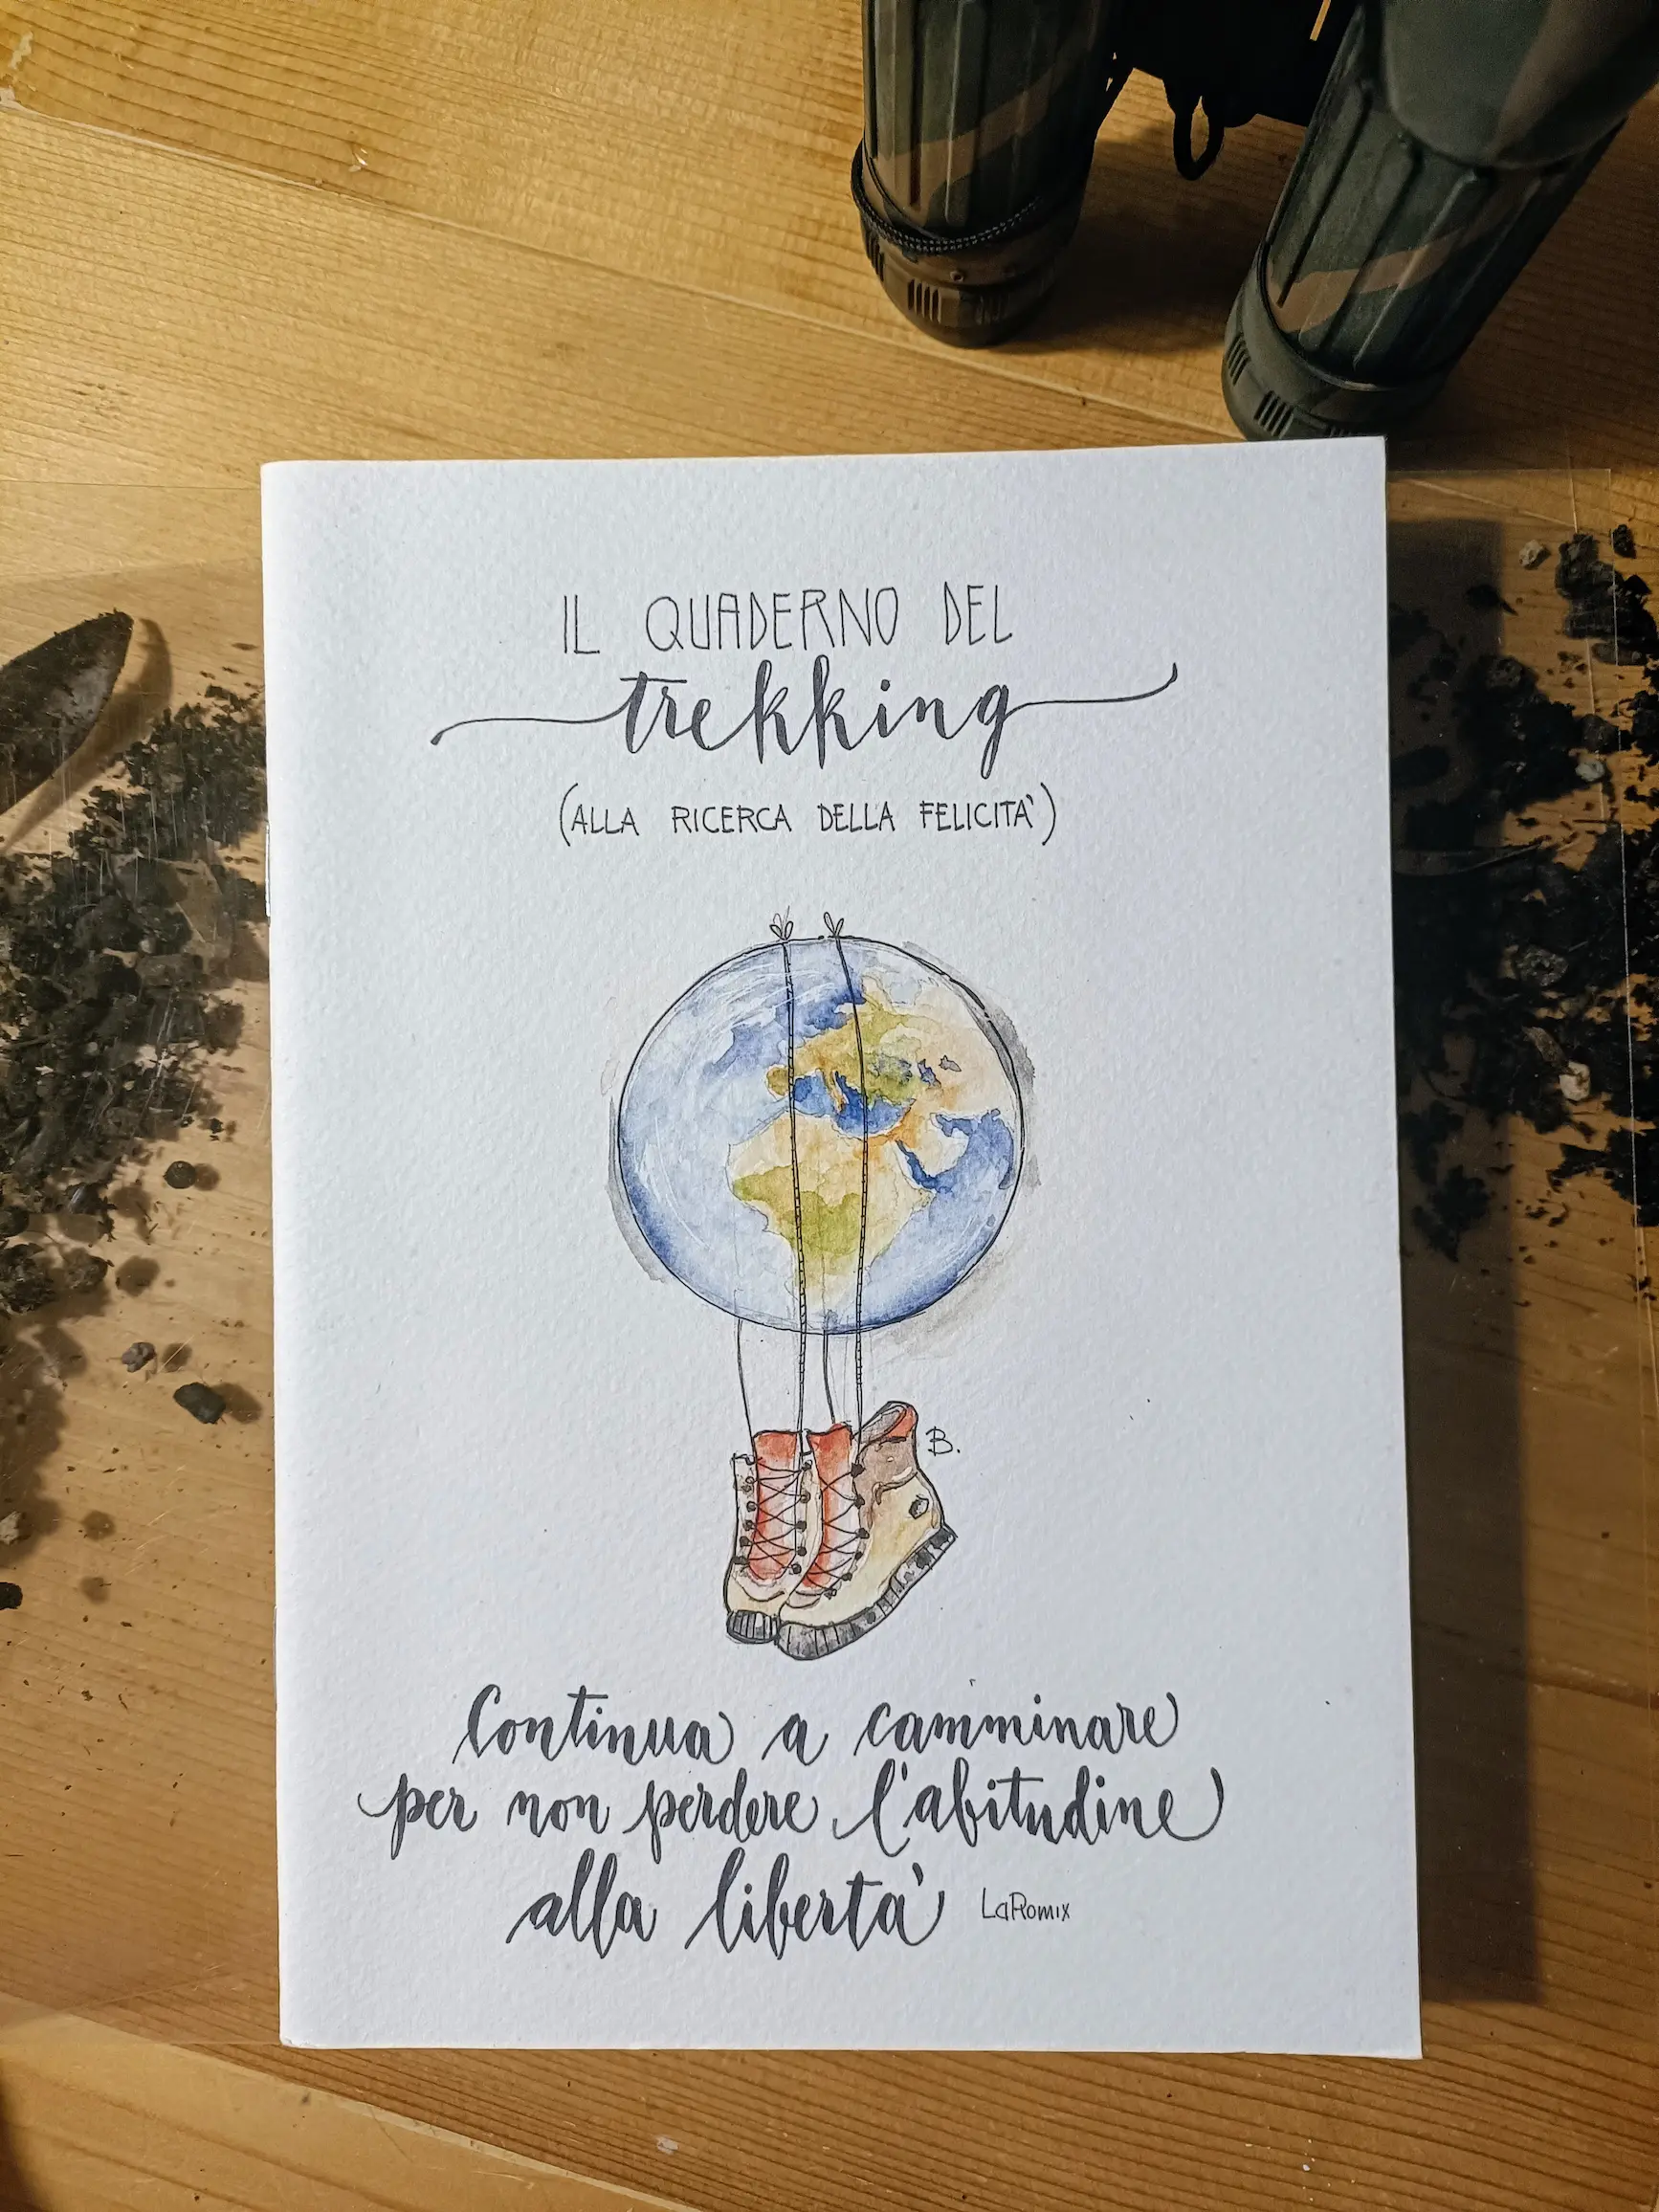 IL QUADERNO DEL
trekking
(ALLA RICERCA DELLA FELICITA')
B.
Continua a camminare
per non perdere l'abitudine
alla liberta' LaRomix